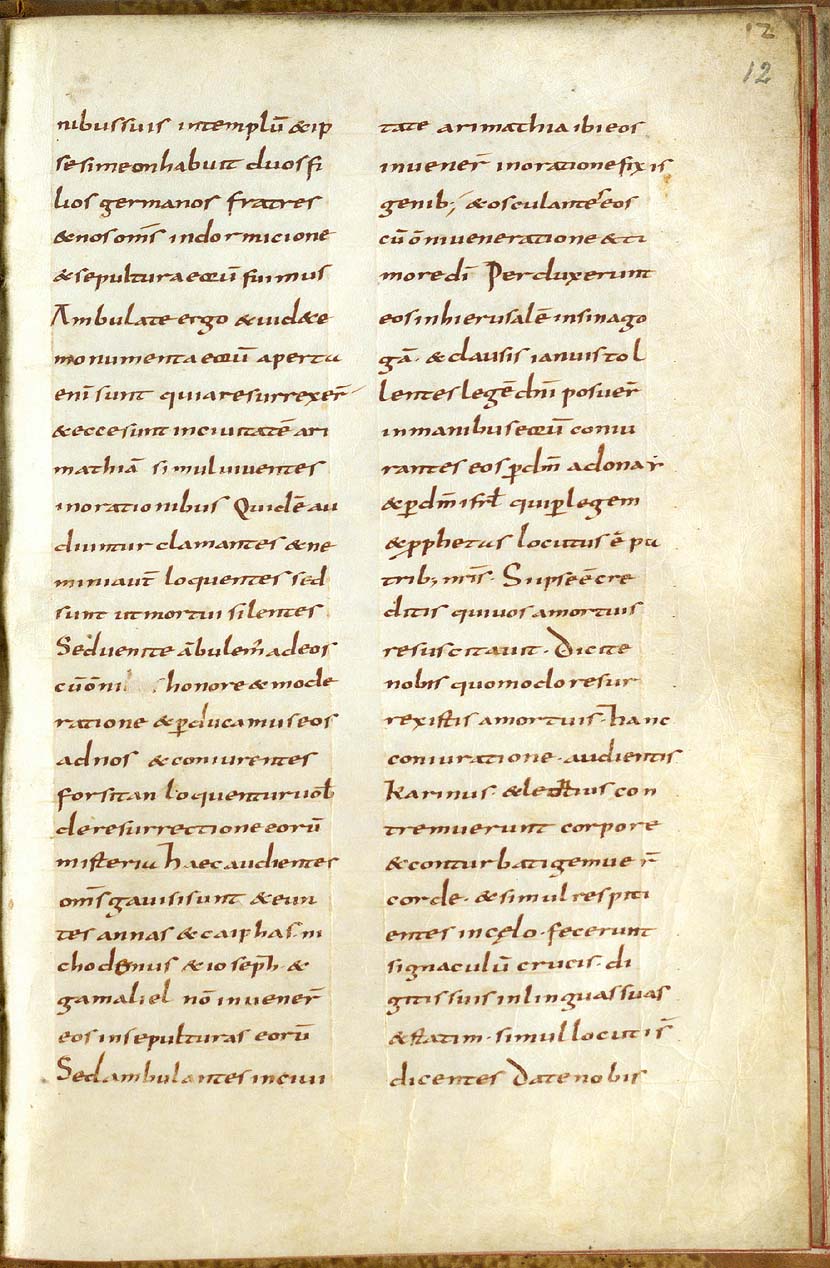 12
12
nibus suis intemplū &ip
se simeon habuit duos fi
lios germanos fratres
& nos om̅s indormicione
& sepultura eoꝝū fuimus
Ambulate ergo & uid&e
monumenta eoꝝū aperta
eni̅ sunt quia resurrexer̅
& ecce sunt inciuitatē ari
mathiā simul uiuentes
inorationibus Quidē au
diuntur clamantes & ne
mini aut̅ loquentes sed
sunt ut mortui silentes
Sed uenite ābulem̅ ad eos
cū ōni honore & mode
ratione & ꝑducamus eos
ad nos & coniurentes
forsitan loquentur uob̅
de resurrectione eorū
misteria haec audientes
om̅s gauisi sunt & eun
tes annas & caiphas· ni
chodemus & ioseph̅· &
gamaliel nō inuener̅
eos insepulturas eorū
Sed ambulantes inciui
tate arimathia ibi eos
inuener̅ inoratione fixis
genib; & osculantes eos
cū ōni ueneratione & ti
more dī Perduxerunt
eos inhierusalē insinago
gā· & clausis ianuis tol
lentes legē dn̄i posuer̅
inmanibus eoꝝū coniu
rantes eos ꝑdm̅ adonay
& ꝑdm̅ isrl̅ qui ꝑlegem
& ꝓphetas locutus ē pa
trib; nr̅is· Si ipse ē̅ cre
ditis qui uos amortuis
resuscitauit· Dicite
nobis quomodo resur
rexistis amortuis· hanc
coniuratione· audientis
Karinus· & leutius con
tremuerunt corpore
& conturbati gemuer̅
corde· & simul respiti
entes in cęlo· fecerunt
signaculū crucis· di
gitis suis inlinguas suas
& statim· simul locuti s̅
dicentes Date nobis